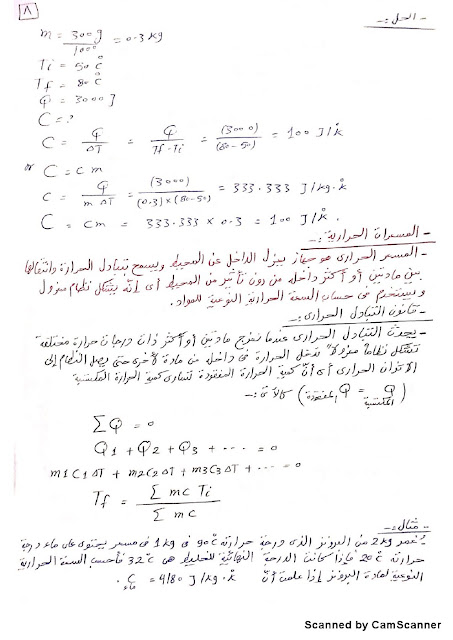 ٨
- الحل :-
m = 300g / 1000 = 0.3 kg
Ti = 50 c°
Tf = 80 c°
Q = 3000 J
C = ?
C = Q / ΔT = Q / Tf - Ti = (3000) / (80-50) = 100 J/k°
or C = c m
c = Q / m ΔT = (3000) / (0.3)×(80-50) = 333.333 J/kg.k°
C = cm = 333.333 × 0.3 = 100 J/k° .
- المسعرات الحرارية :-
- المسعر الحراري هو جهاز يعزل الداخل عن المحيط ويسمح بتبادل الحرارة وانتقالها
بين مادتين أو أكثر داخله من دون تأثير من المحيط أي إنه يشكل نظام معزول
ويستخدم في حساب السعة الحرارية النوعية للمواد .
- قانون التبادل الحراري :-
- يحدث التبادل الحراري عندما نمزج مادتين أو أكثر ذات درجات حرارة مختلفة
تشكل نظاماً معزولاً تنتقل الحرارة في داخله من مادة لأخرى حتى يصل النظام إلى
الاتزان الحراري أي أن كمية الحرارة المفقودة تساوي كمية الحرارة المكتسبة
( Q المفقودة = Q المكتسبة ) كالآتي :-
ΣQ = 0
Q1 + Q2 + Q3 + ---- = 0
m1 C1 ΔT + m2 C2 ΔT + m3 C3 ΔT + ---- = 0
Tf = Σ mc Ti / Σ mc
- مثال :-
يُغمر 2 kg من البرونز الذي درجة حرارته 90°c في 1 kg في مسعر يحتوي على ماء درجة
حرارته 20°c فإذا كانت الدرجة النهائية للخليط هي 32°c فاحسب السعة الحرارية
النوعية لمادة البرونز إذا علمت أن C ماء = 4180 J/kg.k° .
Scanned by CamScanner